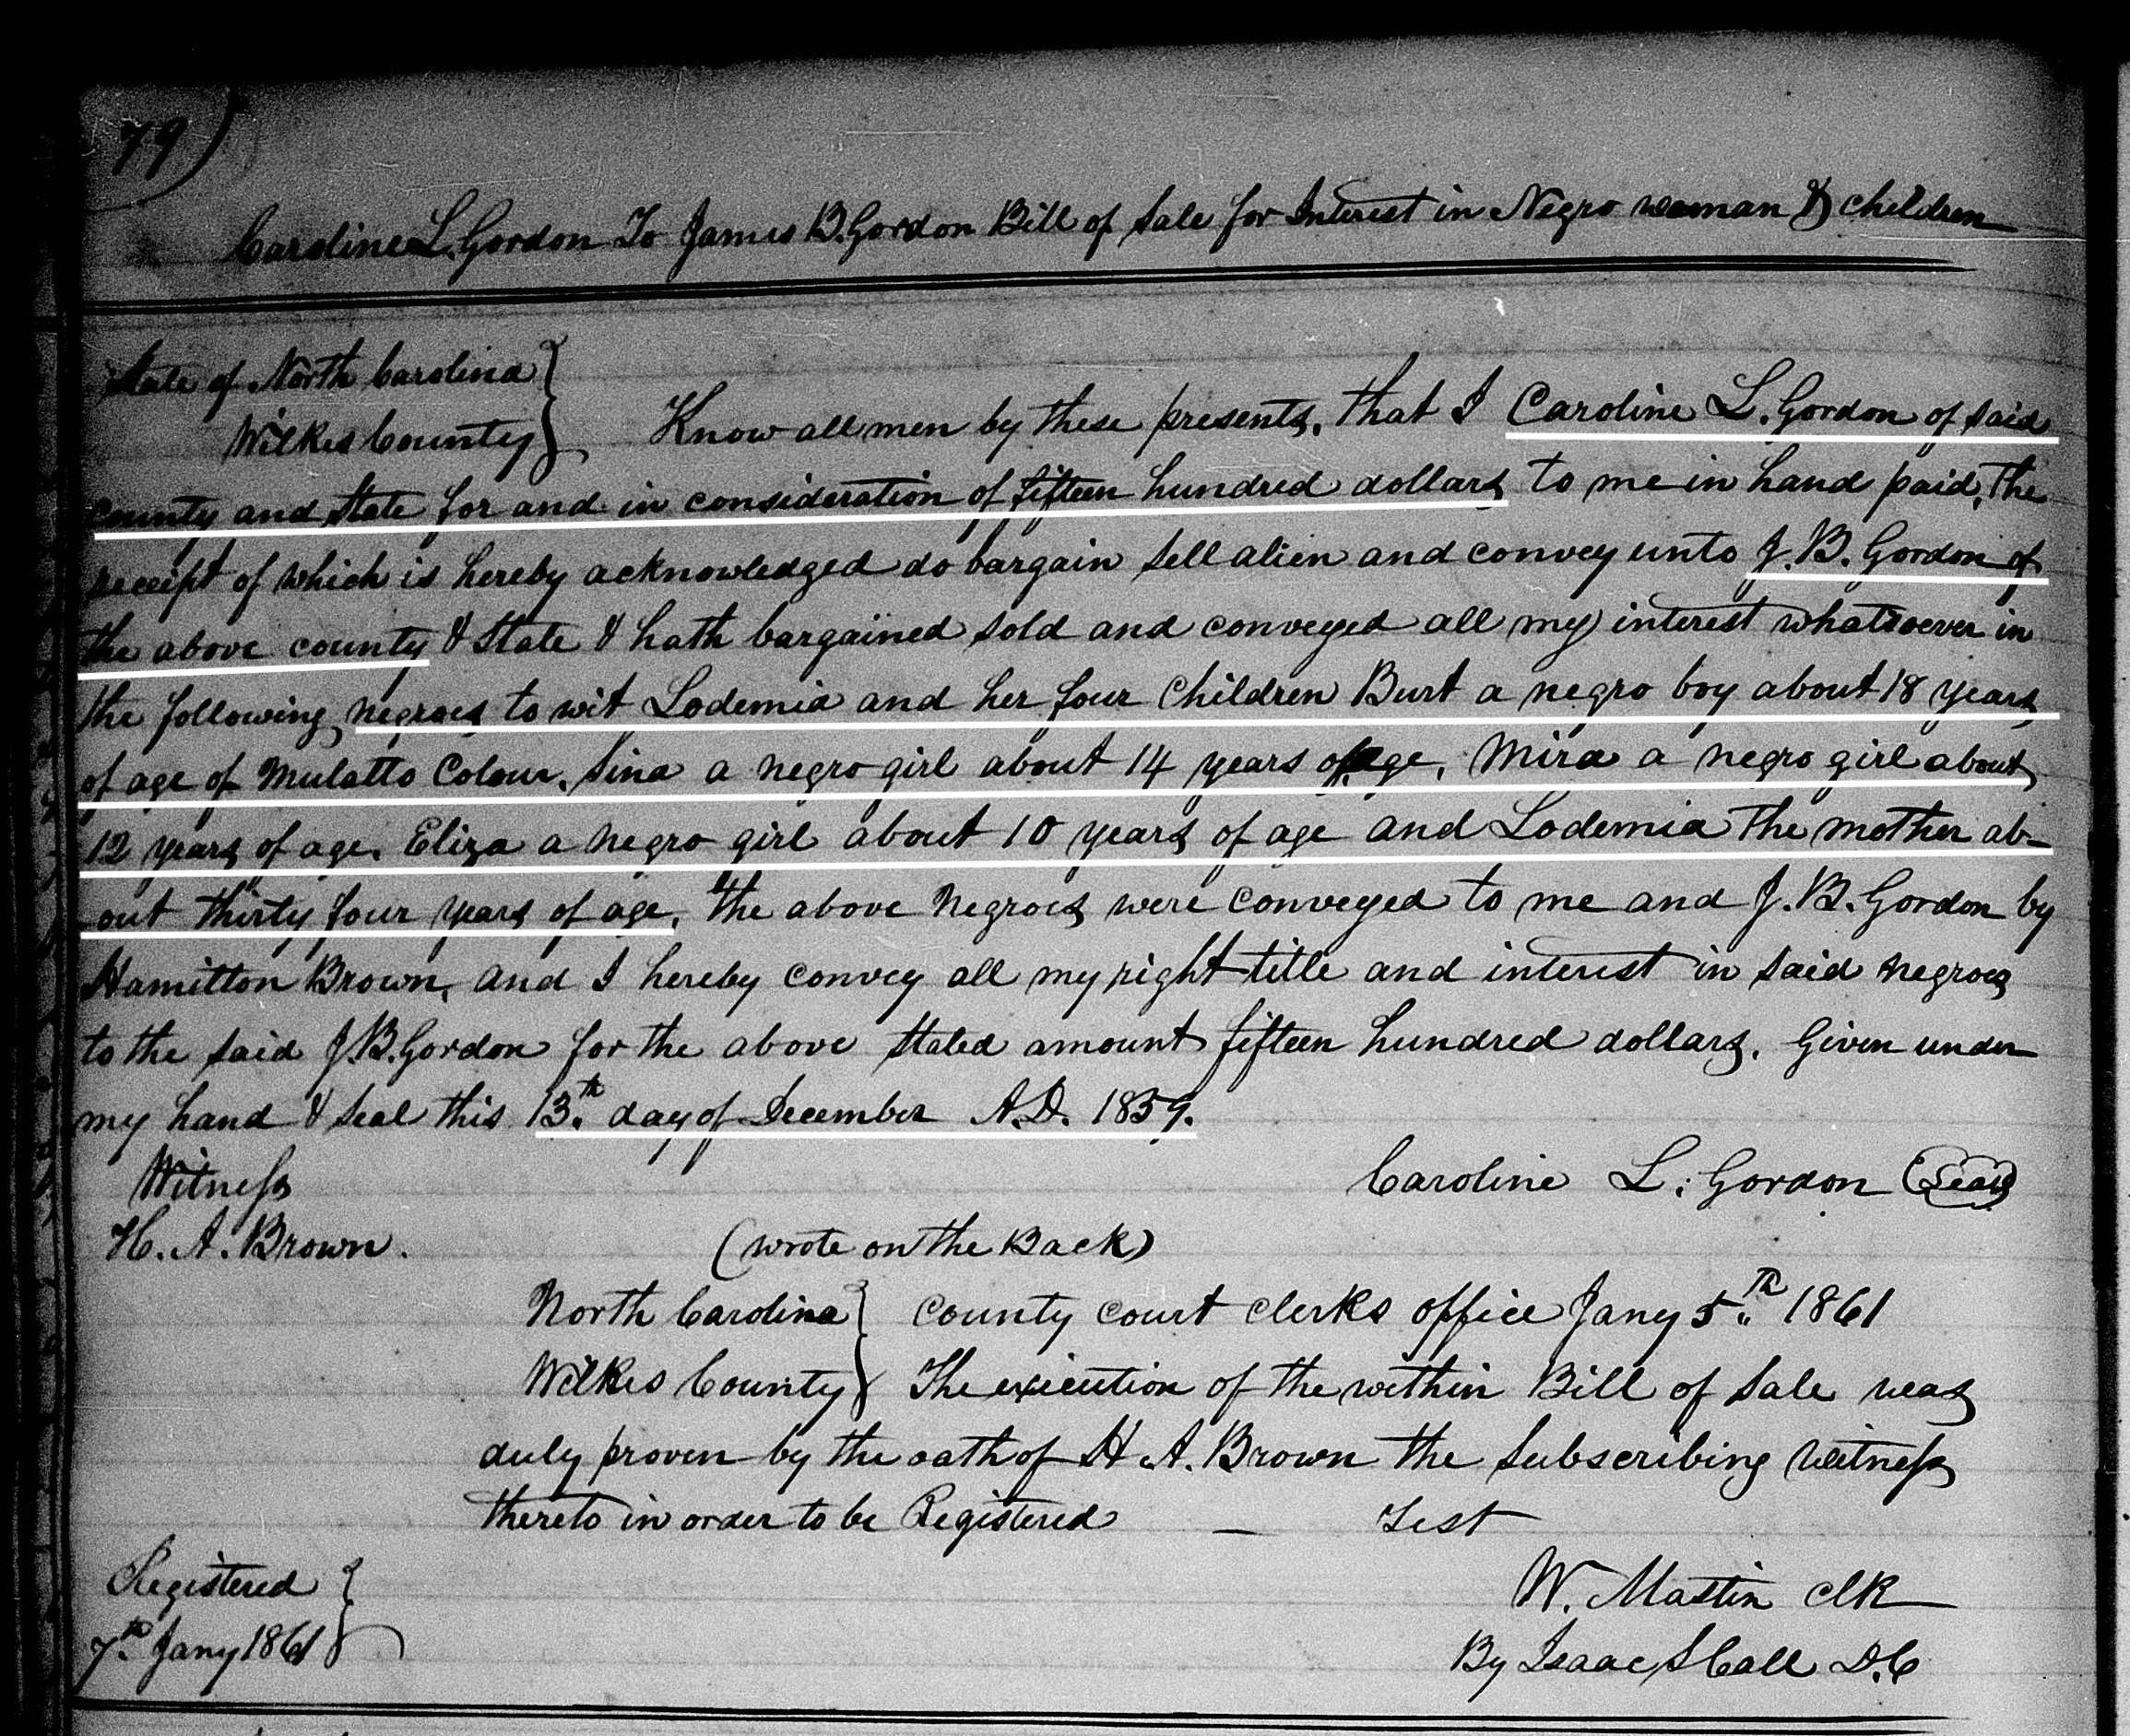 79)
Caroline L. Gordon To James B. Gordon Bill of Sale for Interest in Negro woman & children
State of North Carolina
Wilkes County } Know all men by these presents, that I Caroline L. Gordon of said
county and State for and in consideration of fifteen hundred dollars to me in hand paid, the
receipt of which is hereby acknowledged do bargain sell alien and convey unto J. B. Gordon of
the above county & State & hath bargained sold and conveyed all my interest whatsoever in
the following negroes to wit Lodemia and her four children Burt a negro boy about 18 years
of age of Mulatto Colour, Sina a negro girl about 14 years of age, Mira a negro girl about
12 years of age, Eliza a negro girl about 10 years of age and Lodemia the mother ab-
out thirty four years of age, the above negroes were conveyed to me and J. B. Gordon by
Hamilton Brown, and I hereby convey all my right title and interest in said negroes
to the said J. B. Gordon for the above stated amount fifteen hundred dollars. Given under
my hand & seal this 13th day of December A.D. 1859.
Witness
Caroline L. Gordon (Seal)
H. A. Brown.
(wrote on the Back)
North Carolina } county court clerks office Jany 5th 1861
Wilkes County } The execution of the within Bill of Sale was
duly proven by the oath of H A. Brown the subscribing witness
thereto in order to be Registered — Test
Registered }
W. Mastin clk
7th Jany 1861
By Isaac S Call D.C